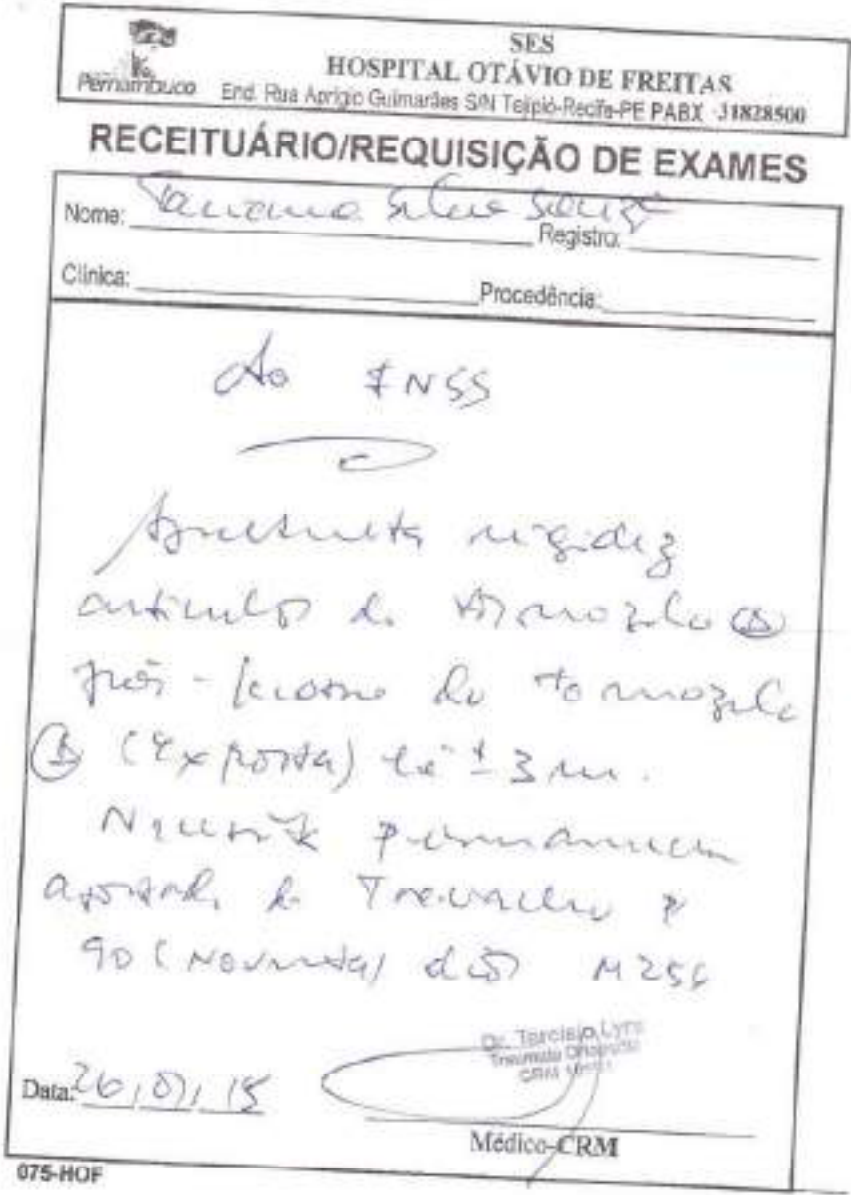 SES
HOSPITAL OTÁVIO DE FREITAS
Pernambuco
End. Rua Aprígio Guimarães S/N Tejipió-Recife-PE PABX -31828500
RECEITUÁRIO/REQUISIÇÃO DE EXAMES
Nome: Silva
Registro:
Clínica:
Procedência:
Ao INSS
Apresenta rigidez
articular do tornozelo
pós - do tornozelo
(Exposta) há ± 3 m.
Necessita permanecer
afastado do Trabalho p
90 (Noventa) dias M256
Dr. Tarcisio Lyra
Data: 26
Médico-CRM
075-HOF